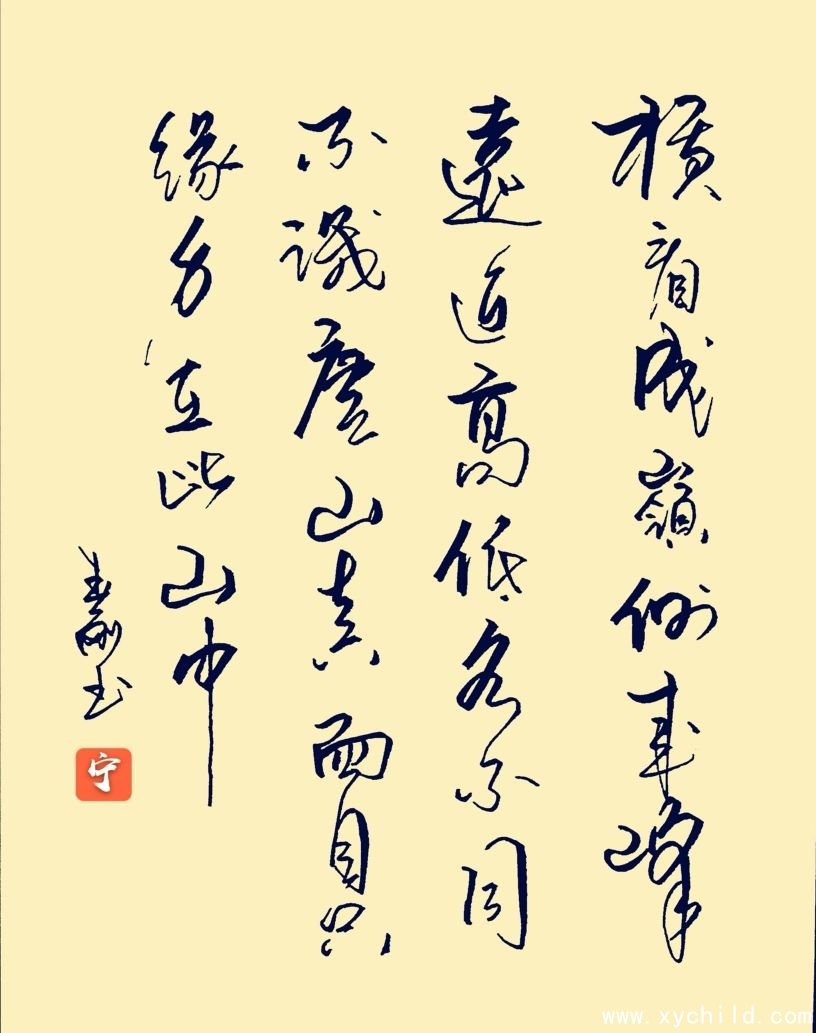 横看成嶺侧成峰
遠近高低各不同
不識廬山真面目只
缘身在此山中
书
宁
www.xychild.com